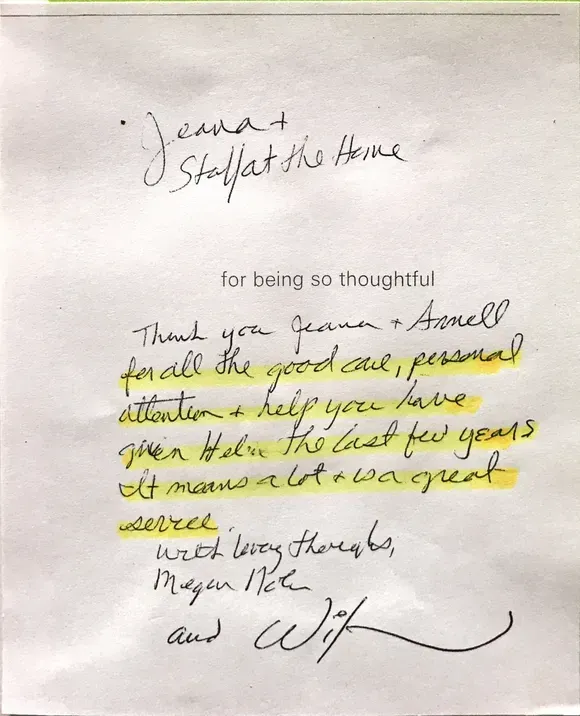 Jeana +
Staff at the Home
for being so thoughtful
Thank you Jeana + Arnell
for all the good care, personal
attention + help you have
given the last few years
It means a lot + is a great
service
with loving thoughts,
Megan
and